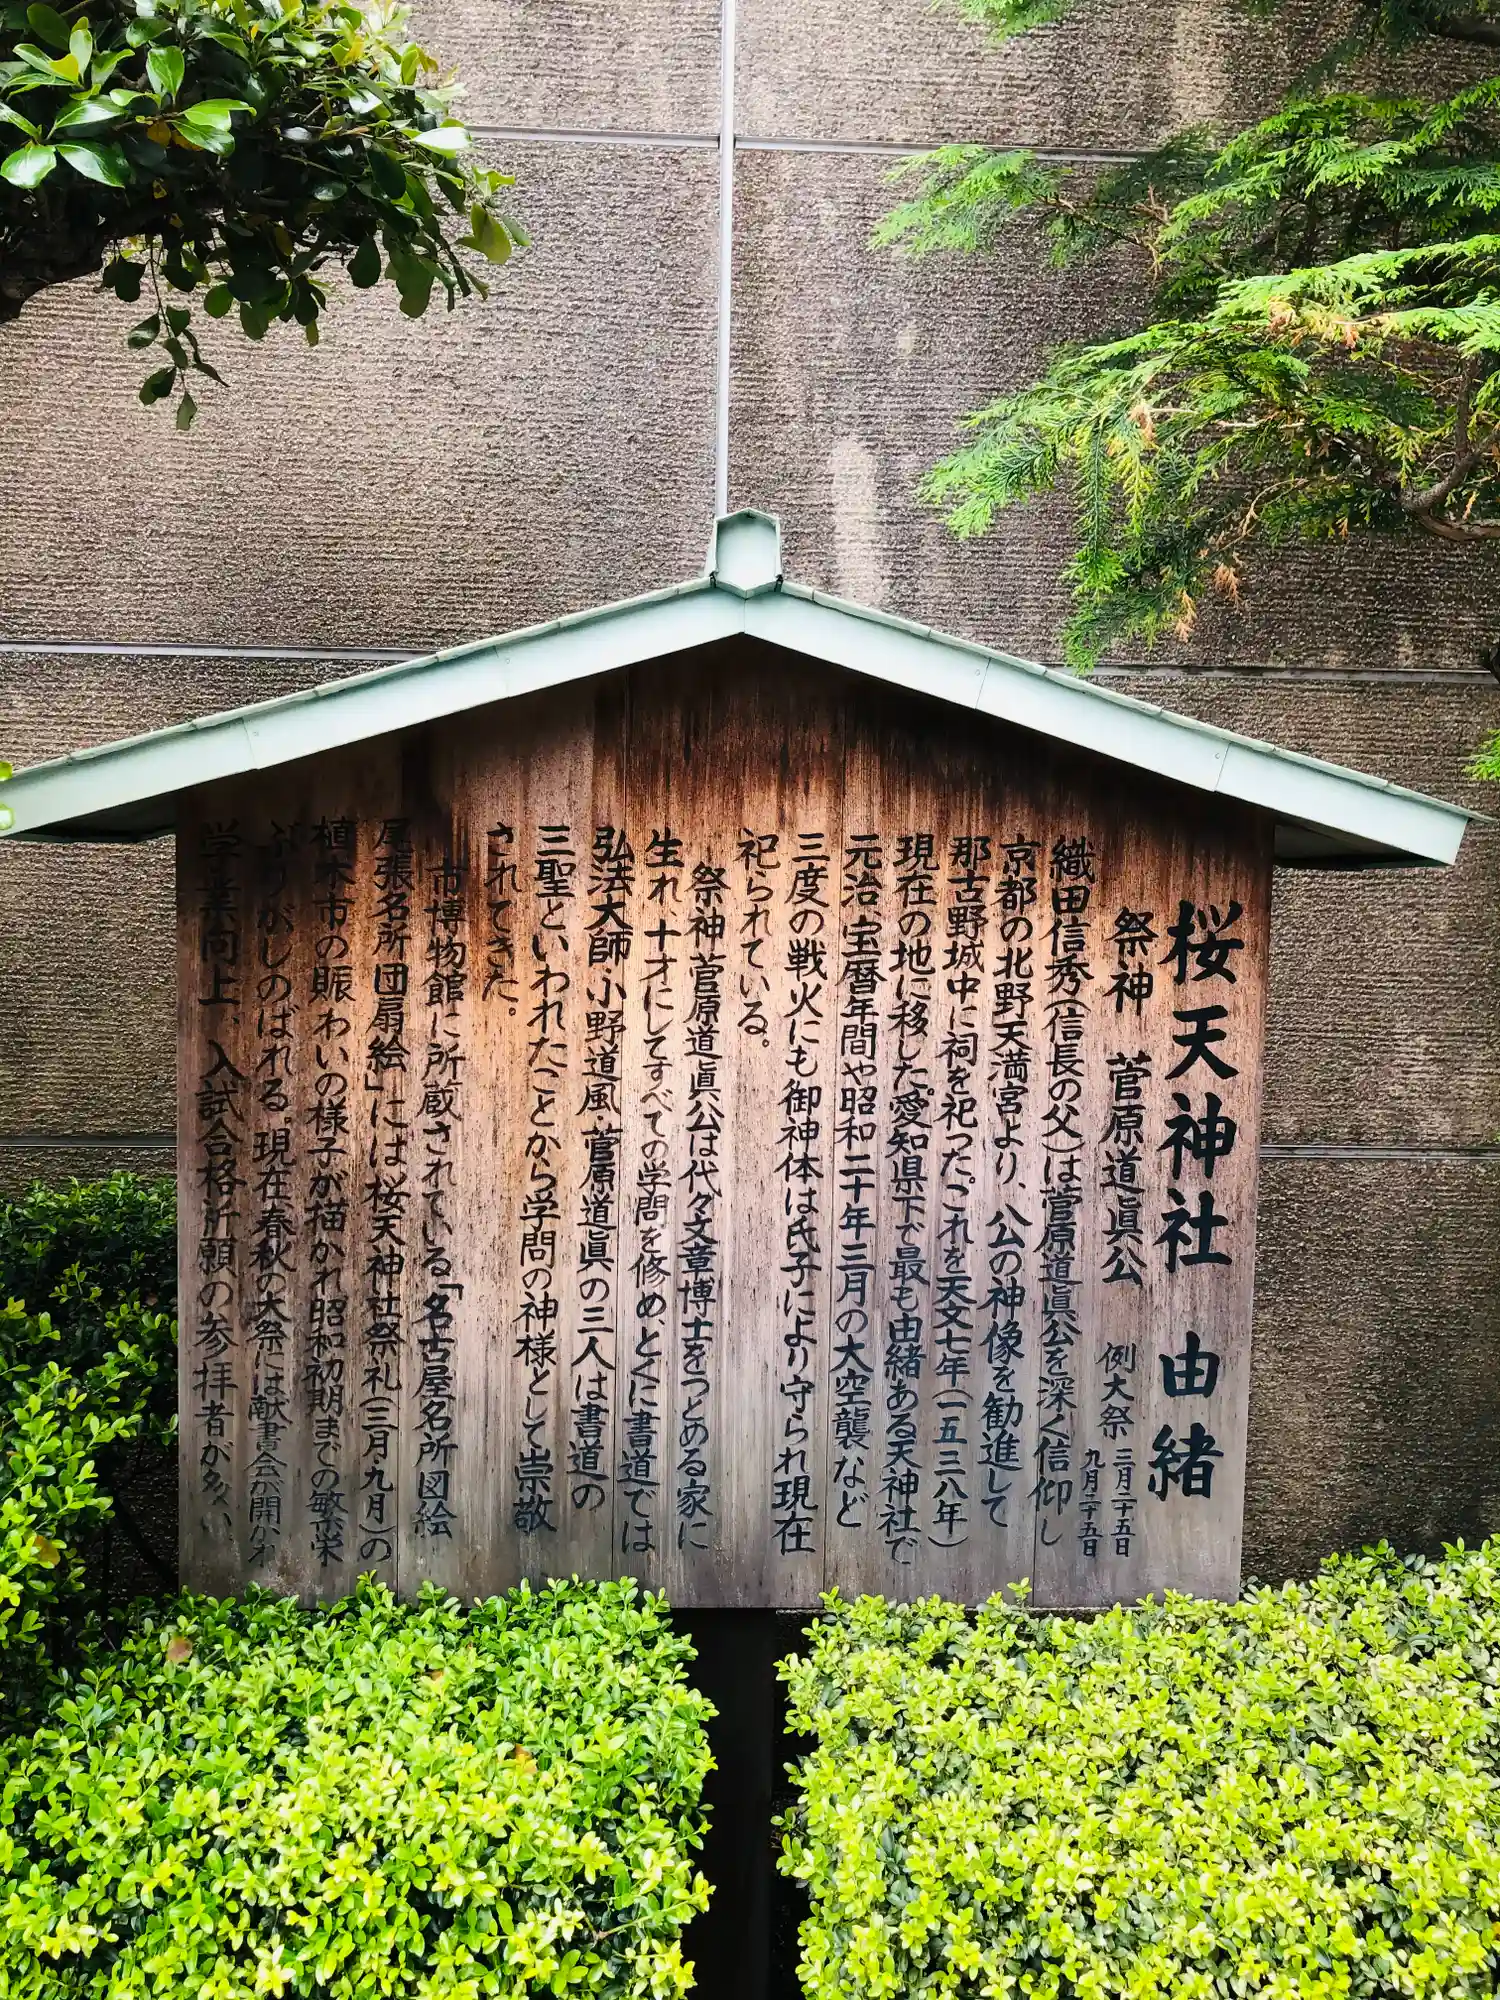 桜天神社 由緒
祭神 菅原道眞公 例大祭 三月二十五日
九月二十五日
織田信秀(信長の父)は菅原道眞公を深く信仰し
京都の北野天満宮より、公の神像を勧進して
那古野城中に祠を祀った。これを天文七年(一五三八年)
現在の地に移した。愛知県下で最も由緒ある天神社で
元治、宝暦年間や昭和二十年三月の大空襲など
三度の戦火にも御神体は氏子により守られ現在
祀られている。
祭神菅原道眞公は代々文章博士をつとめる家に
生れ、十才にしてすべての学問を修め、とくに書道では
弘法大師・小野道風・菅原道眞の三人は書道の
三聖といわれたことから学問の神様として崇敬
されてきた。
市博物館に所蔵されている「名古屋名所図絵
尾張名所団扇絵」には桜天神社祭礼(三月・九月)の
植木市の賑わいの様子が描かれ昭和初期までの繁栄
ぶりがしのばれる。現在、春秋の大祭には献書会が開かれ
学業向上、入試合格祈願の参拝者が多い